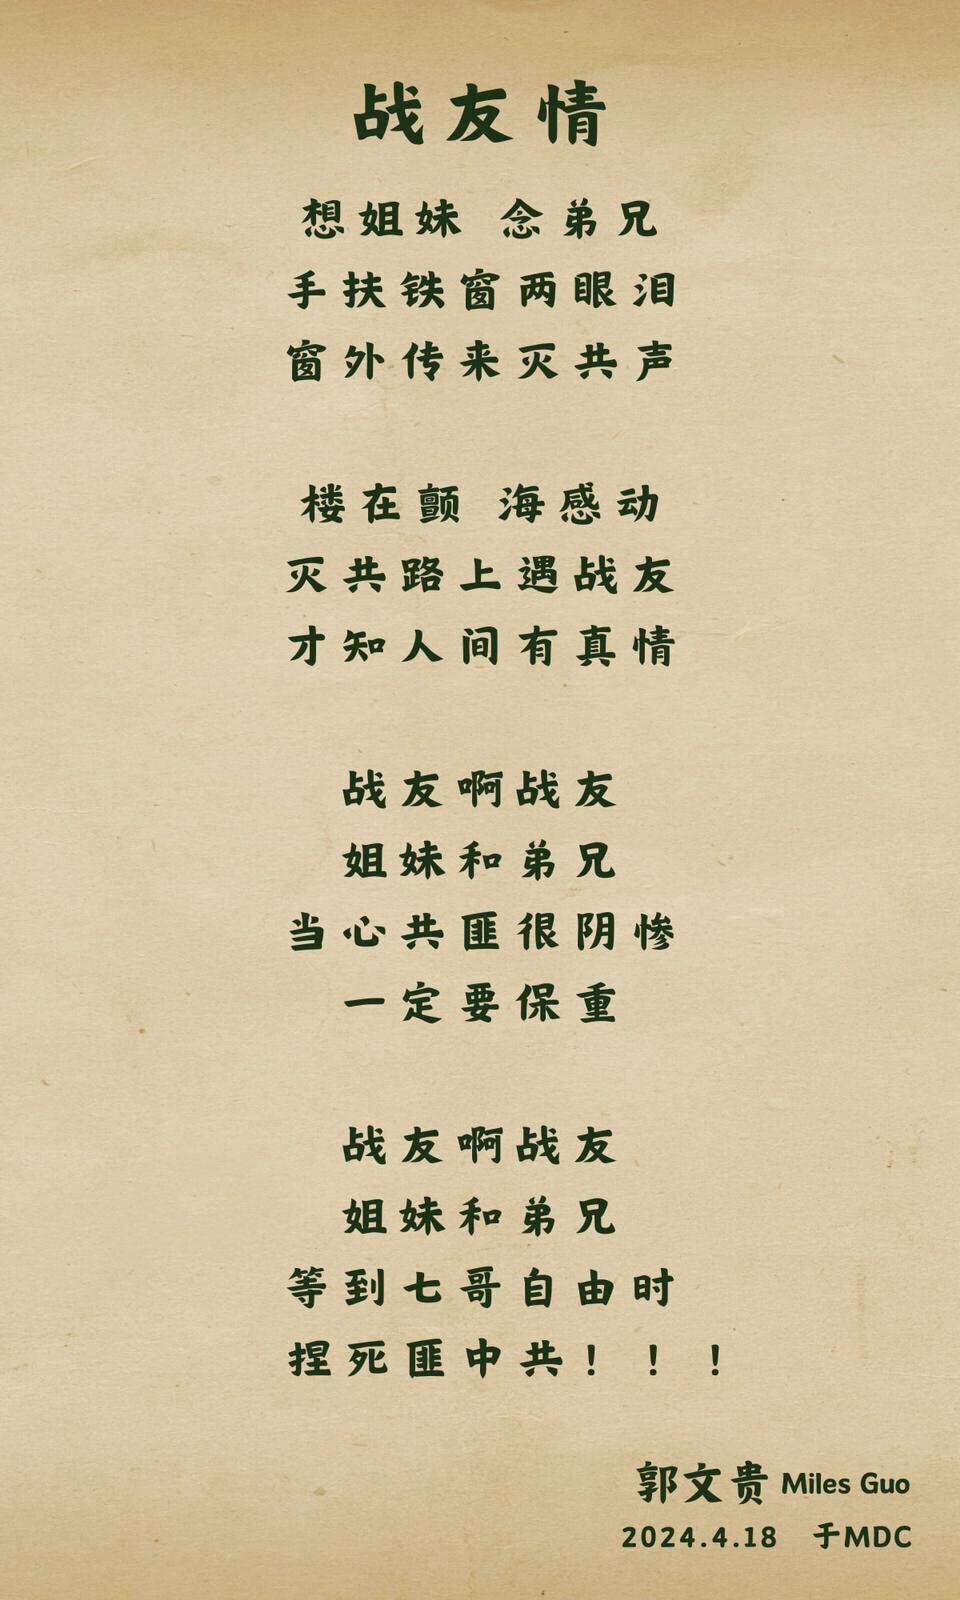 战友情
想姐妹 念弟兄
手扶铁窗两眼泪
窗外传来灭共声
楼在颤 海感动
灭共路上遇战友
才知人间有真情
战友啊战友
姐妹和弟兄
当心共匪很阴惨
一定要保重
战友啊战友
姐妹和弟兄
等到七哥自由时
捏死匪中共！！！
郭文贵 Miles Guo
2024.4.18 于MDC